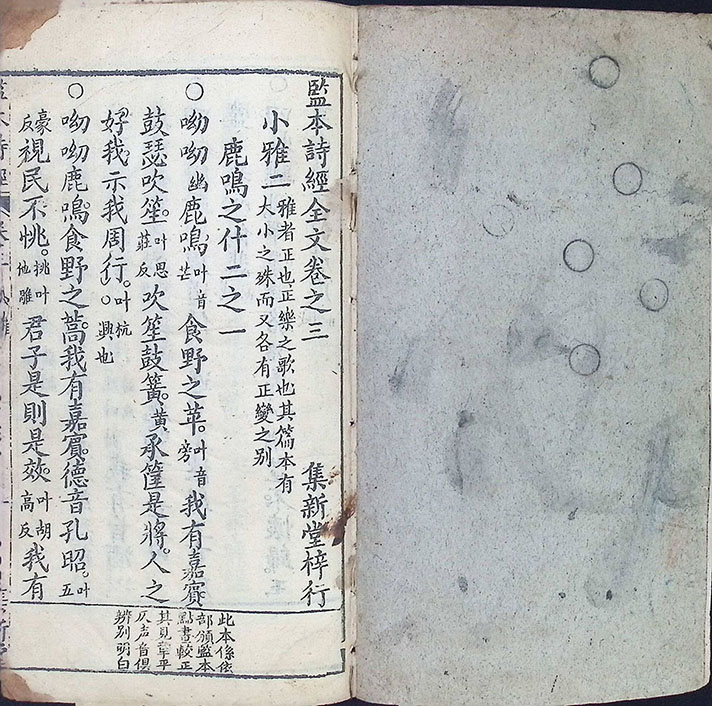 監本詩經全文卷之三
集新堂梓行
小雅二
雅者正也正樂之歌也其篇本有
大小之殊而又各有正變之别
鹿鳴之什二之一
○呦呦幽鹿鳴叶音芒食野之苹叶音旁我有嘉賓
鼓瑟吹笙叶思莊反吹笙鼓簧黄承筐是將人之
好我示我周行叶杭○興也
○呦呦鹿鳴食野之蒿我有嘉賓德音孔昭叶五
豪反視民不恌挑叶他雕君子是則是效叶胡高反我有
此本係依
部頒監本
點畫較正
其見章平
仄声音俱
辨别明白